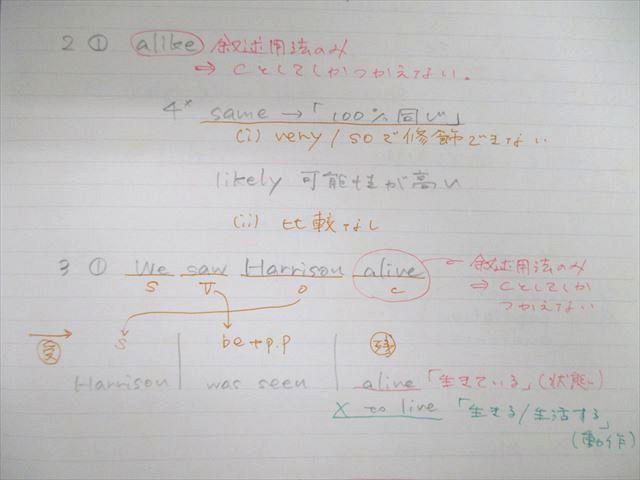 2 ① alike 叙述用法のみ
⇒ Cとしてしかつかえない。
4× same →「100%同じ」
(i) very/soで修飾できない
likely 可能性が高い
(ii) 比較なし
3 ① We saw Harrison alive ← 叙述用法のみ
S V O C ⇒ Cとしてしか
つかえない
→ 受 S be+p.p 残
Harrison | was seen | alive「生きている」(状態)
× to live 「生きる/生活する」
(動作)